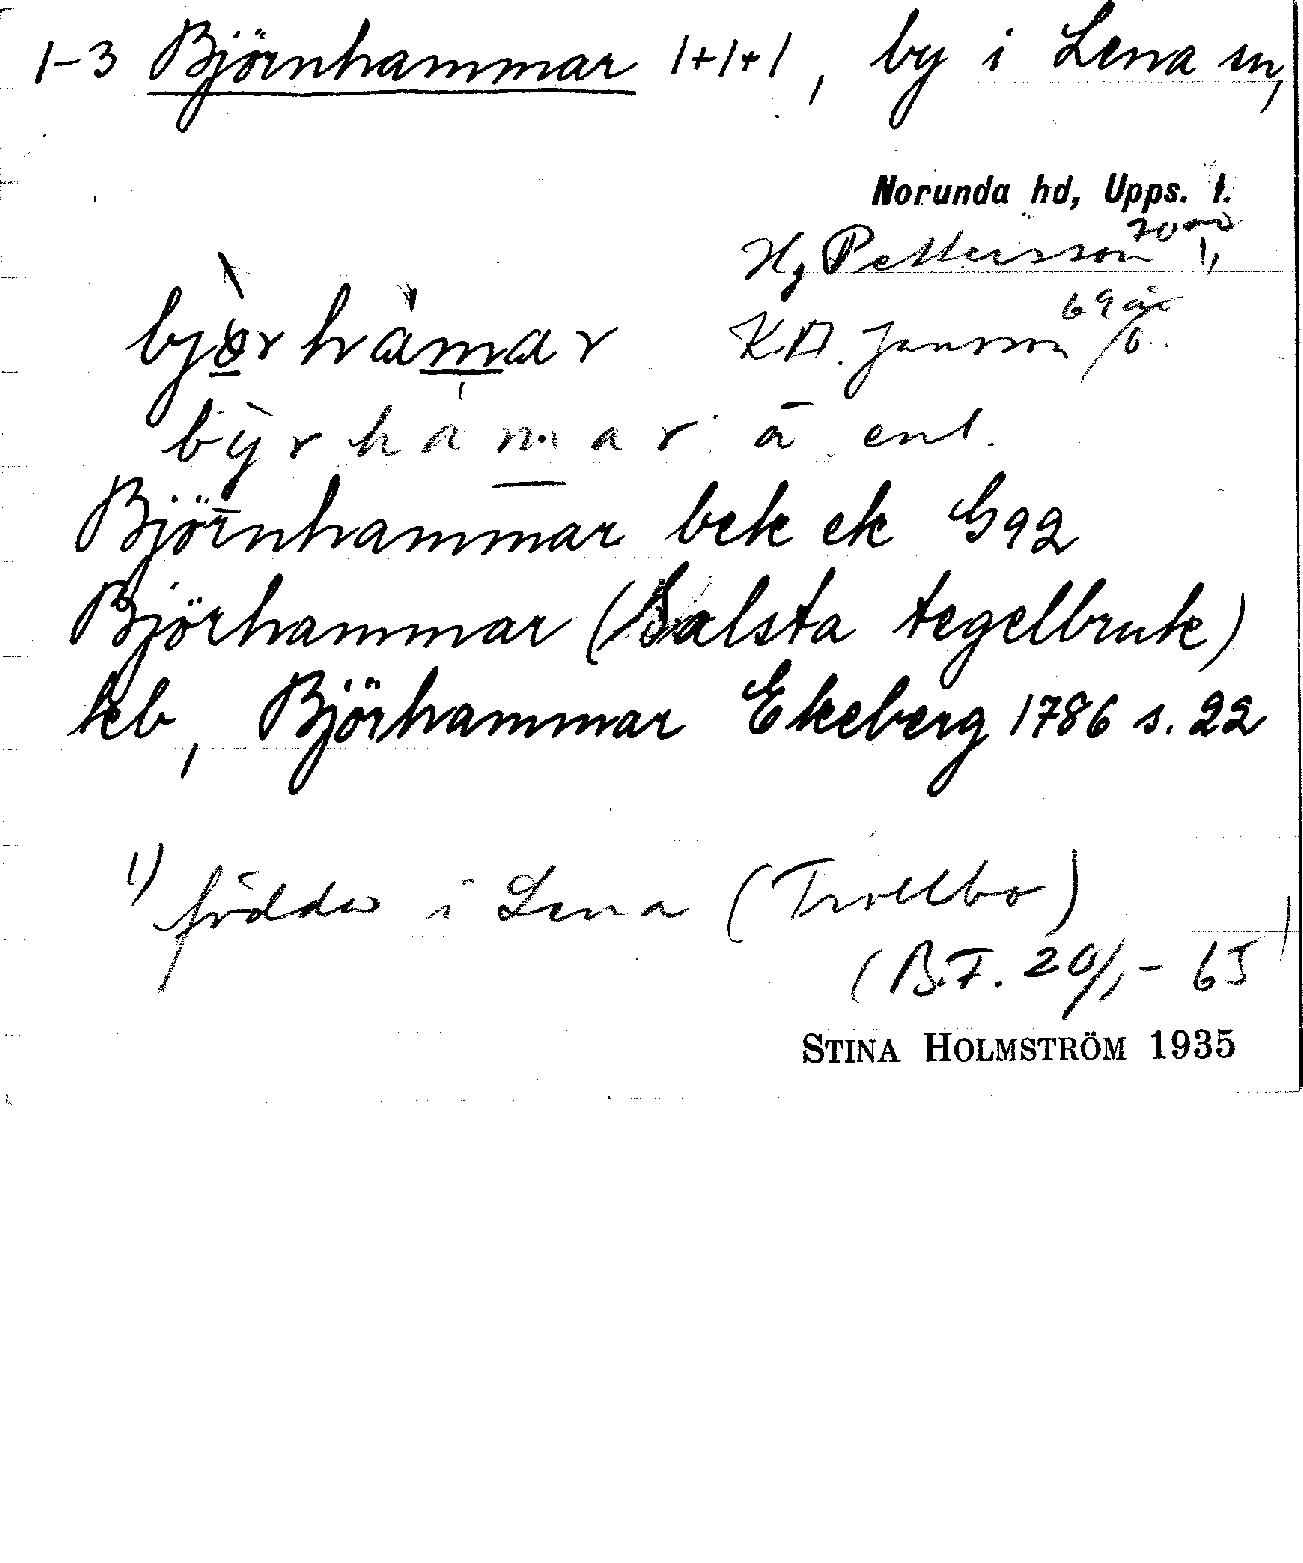 1-3 Björnhammar 1+1+1, by i Lena sn,
Norunda hd, Upps. l.
Hj Pettersson 70 år 1,
bjørhàmar K.A. Jansson 69 år
bỳrhamar ā enl.
Björnhammar bek ek G92
Björhammar (Salsta tegelbruk)
jeb, Björhammar Ekeberg 1786 s. 22
1) födda i Lena (Trollbo)
(B.F. 20/1 - 65
STINA HOLMSTRÖM 1935